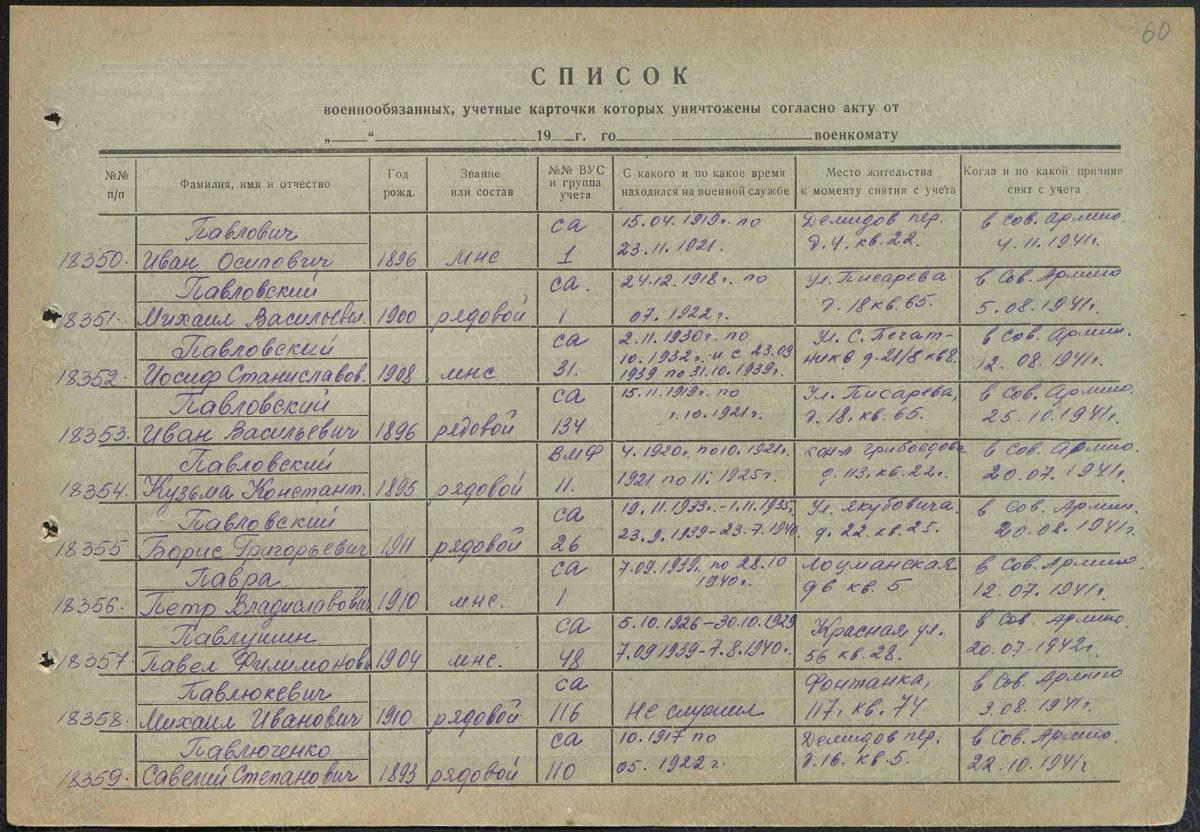 60
СПИСОК
военнообязанных, учетные карточки которых уничтожены согласно акту от
„ “ 19 г. го военкомату
№№ п/п Фамилия, имя и отчество Год рожд. Звание или состав №№ ВУС и группа учета С какого и по какое время находился на военной службе Место жительства к моменту снятия с учета Когда и по какой причине снят с учета
Павлович са 15.04.1919г. по Демидов пер. в Сов. Армию.
18350. Иван Осипович 1896 мнс 1 23.11.1921. д.4. кв.22. 4.11.1941г.
Павловский са. 24.12.1918г. по ул. Писарева в Сов. Армию
18351. Михаил Васильевич. 1900 рядовой 1 07.1922г. д.18 кв.65. 5.08.1941г.
Павловский са 2.11.1930г. по Ул. С. Печат- в Сов. Армию.
18352. Иосиф Станиславов. 1908 мнс 31. 10.1932г. и с 23.09 ников д.21/8 кв8. 12.08.1941г.
1939 по 31.10.1939г.
Павловский са 15.11.1919г. по Ул. Писарева, в Сов. Армию.
18353. Иван Васильевич 1896 рядовой 134 1.10.1921г. д.18, кв.65. 25.10.1941г.
Павловский ВМФ 4.1920г. по 10.1921г. кан. Грибоедова в Сов. Армию.
18354. Кузьма Констант. 1895 рядовой 11. 1921 по 11. 1925г. д.113, кв.22г. 20.07.1941г.
Павловский са 19.11.1933г.-1.11.1935, Ул. Якубовича. в Сов. Армию.
18355 Борис Григорьевич 1911 рядовой 26 23.9.1939-23.7.1940. д.22 кв.25. 20.08.1941г.
Павра са 7.09.1939г. по 28.10 Лоцманская в Сов. Армию.
18356. Петр Владиславович 1910 мнс. 1 1940г. кв. 5 12.07.1941г.
Павлушин са 5.10.1926-30.10.1929 Красная ул. в Сов. Армию.
18357. Павел Филимонови 1904 мнс. 48 7.09.1939-7.8.1940г. 56 кв.28. 20.07.1942г.
Павлюкевич са Фонтанка, в Сов. Армию
18358. Михаил Иванович 1910 рядовой 116 Не служил 117, кв.74 9.08.1941г.
Павлюченко са 10.1917 по Демидов пер. в Сов. Армию.
18359. Савелий Степанович 1893 рядовой 110 05.1922г. д.16. кв.5. 22.10.1941г